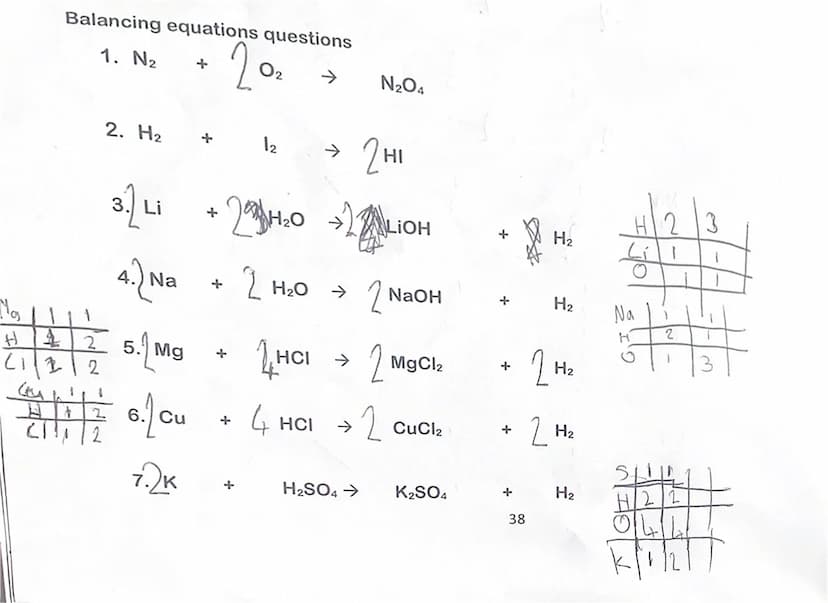 Balancing equations questions
1. N₂ + 2 O₂ → N₂O₄
2. H₂ + I₂ → 2 HI
3. 2 Li + 2 H₂O → 2 LiOH + H₂
4. 2 Na + 2 H₂O → 2 NaOH + H₂
5. 2 Mg + 4 HCl → 2 MgCl₂ + 2 H₂
6. 2 Cu + 4 HCl → 2 CuCl₂ + 2 H₂
7. 2 K + H₂SO₄ → K₂SO₄ + H₂
38
H 2 3
Li 1 1
O 1 1
Na 1 1
H 2 1
O 1 3
Mg 1 1
H 2
Cl 2
Cu 1 1
H 1 2
Cl 1 2
S 1 1
H 2 2
O 4 4
K 1 2